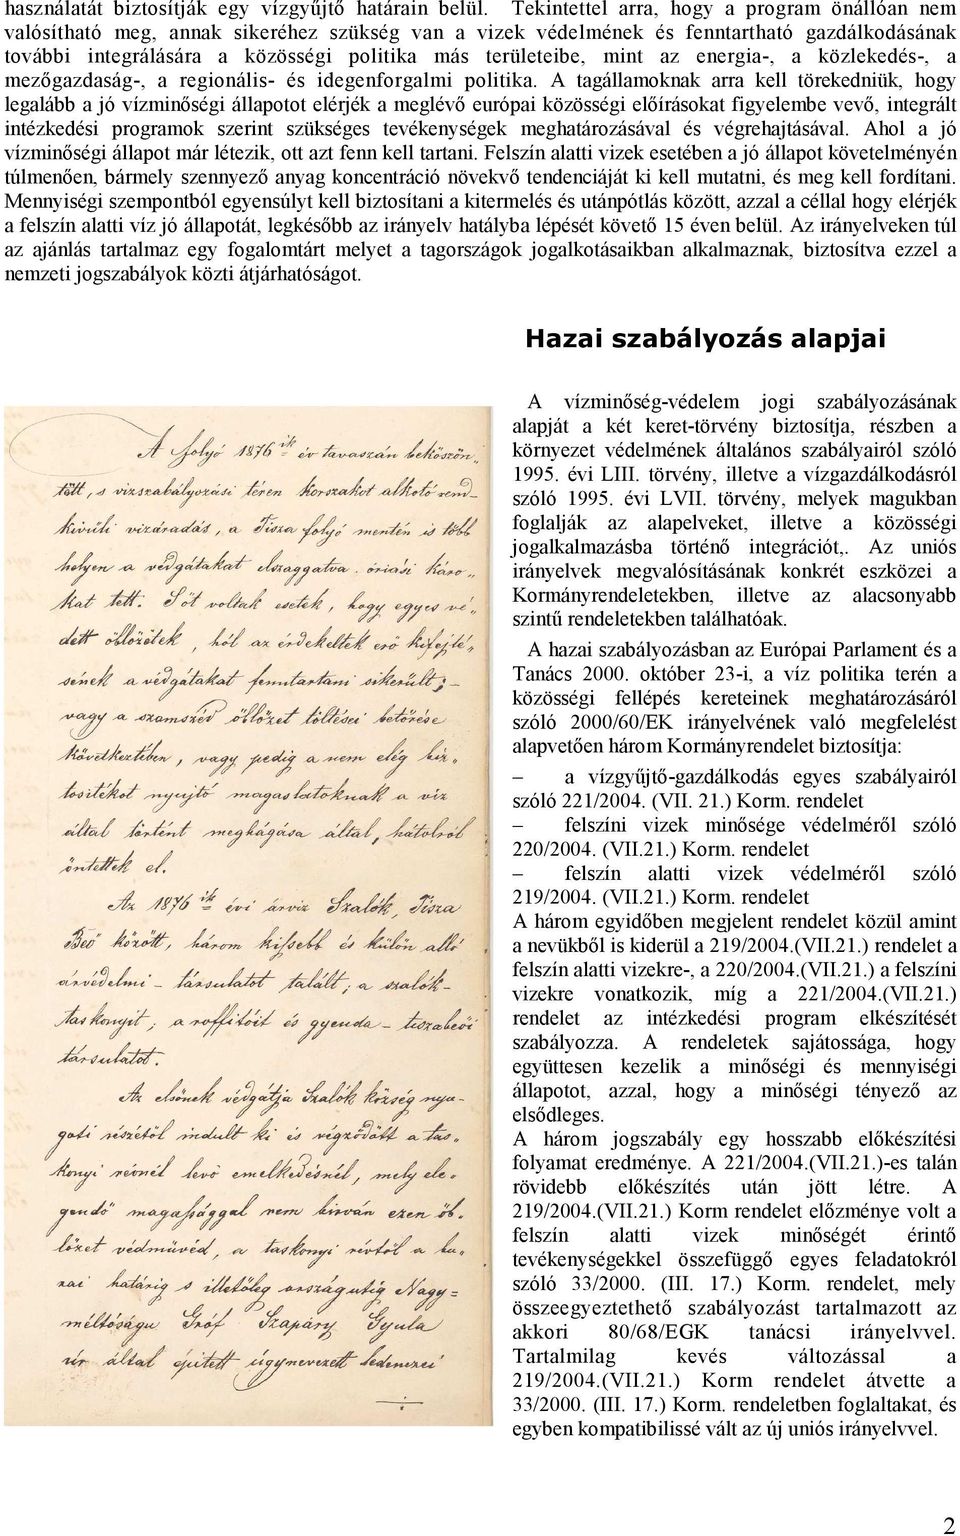 használatát biztosítják egy vízgyűjtő határain belül. Tekintettel arra, hogy a program önállóan nem
valósítható meg, annak sikeréhez szükség van a vizek védelmének és fenntartható gazdálkodásának
további integrálására a közösségi politika más területeibe, mint az energia-, a közlekedés-, a
mezőgazdaság-, a regionális- és idegenforgalmi politika. A tagállamoknak arra kell törekedniük, hogy
legalább a jó vízminőségi állapotot elérjék a meglévő európai közösségi előírásokat figyelembe vevő, integrált
intézkedési programok szerint szükséges tevékenységek meghatározásával és végrehajtásával. Ahol a jó
vízminőségi állapot már létezik, ott azt fenn kell tartani. Felszín alatti vizek esetében a jó állapot követelményén
túlmenően, bármely szennyező anyag koncentráció növekvő tendenciáját ki kell mutatni, és meg kell fordítani.
Mennyiségi szempontból egyensúlyt kell biztosítani a kitermelés és utánpótlás között, azzal a céllal hogy elérjék
a felszín alatti víz jó állapotát, legkésőbb az irányelv hatályba lépését követő 15 éven belül. Az irányelveken túl
az ajánlás tartalmaz egy fogalomtárt melyet a tagországok jogalkotásaikban alkalmaznak, biztosítva ezzel a
nemzeti jogszabályok közti átjárhatóságot.
Hazai szabályozás alapjai
A folyó 1876 ik év tavaszán beköszön„
tött, s vizszabályozási téren korszakot alkotó rend–
kivüli vizáradás, a Tisza folyó mentén is több
helyen a védgátakat elszaggatva óriási káro„
kat tett. Sőt voltak esetek, hogy egyes vé„
dett öblözetek, hól az érdekeltek erő kifejté„
sének a védgátakat fenntartani sikerült; –
vagy a szomszéd öblözet töltései betörése
következtében, vagy pedig a nem elég biz„
tositékot nyujtó magaslatoknak a viz
által történt meghágása által, hátulról
öntettek el.
Az 1876 ik évi árviz Szalók, Tisza
Beő között, három kissebb és külön álló
árvédelmi – társulatot talált; a szalók–
taskonyit; a roffitóit és gyenda – tiszabeői
társulatot.
Az elsőnek védgátja Szalók község nyu„
goti részétől indult ki és végződött a tas„
konyi révnél levő emelkedésnél, mely ele„
gendő magassággal nem birván ezen öb„
lözet védmüvéd, a taskonyi révtől a bu„
rai határig s illetőleg országutig Nagy=
méltóságu Gróf Szapáry Gyula
úr által épitett úgynevezett
A vízminőség-védelem jogi szabályozásának
alapját a két keret-törvény biztosítja, részben a
környezet védelmének általános szabályairól szóló
1995. évi LIII. törvény, illetve a vízgazdálkodásról
szóló 1995. évi LVII. törvény, melyek magukban
foglalják az alapelveket, illetve a közösségi
jogalkalmazásba történő integrációt,. Az uniós
irányelvek megvalósításának konkrét eszközei a
Kormányrendeletekben, illetve az alacsonyabb
szintű rendeletekben találhatóak.
A hazai szabályozásban az Európai Parlament és a
Tanács 2000. október 23-i, a víz politika terén a
közösségi fellépés kereteinek meghatározásáról
szóló 2000/60/EK irányelvének való megfelelést
alapvetően három Kormányrendelet biztosítja:
– a vízgyűjtő-gazdálkodás egyes szabályairól
szóló 221/2004. (VII. 21.) Korm. rendelet
– felszíni vizek minősége védelméről szóló
220/2004. (VII.21.) Korm. rendelet
– felszín alatti vizek védelméről szóló
219/2004. (VII.21.) Korm. rendelet
A három egyidőben megjelent rendelet közül amint
a nevükből is kiderül a 219/2004.(VII.21.) rendelet a
felszín alatti vizekre-, a 220/2004.(VII.21.) a felszíni
vizekre vonatkozik, míg a 221/2004.(VII.21.)
rendelet az intézkedési program elkészítését
szabályozza. A rendeletek sajátossága, hogy
együttesen kezelik a minőségi és mennyiségi
állapotot, azzal, hogy a minőségi tényező az
elsődleges.
A három jogszabály egy hosszabb előkészítési
folyamat eredménye. A 221/2004.(VII.21.)-es talán
rövidebb előkészítés után jött létre. A
219/2004.(VII.21.) Korm rendelet előzménye volt a
felszín alatti vizek minőségét érintő
tevékenységekkel összefüggő egyes feladatokról
szóló 33/2000. (III. 17.) Korm. rendelet, mely
összeegyeztethető szabályozást tartalmazott az
akkori 80/68/EGK tanácsi irányelvvel.
Tartalmilag kevés változással a
219/2004.(VII.21.) Korm rendelet átvette a
33/2000. (III. 17.) Korm. rendeletben foglaltakat, és
egyben kompatibilissé vált az új uniós irányelvvel.
2